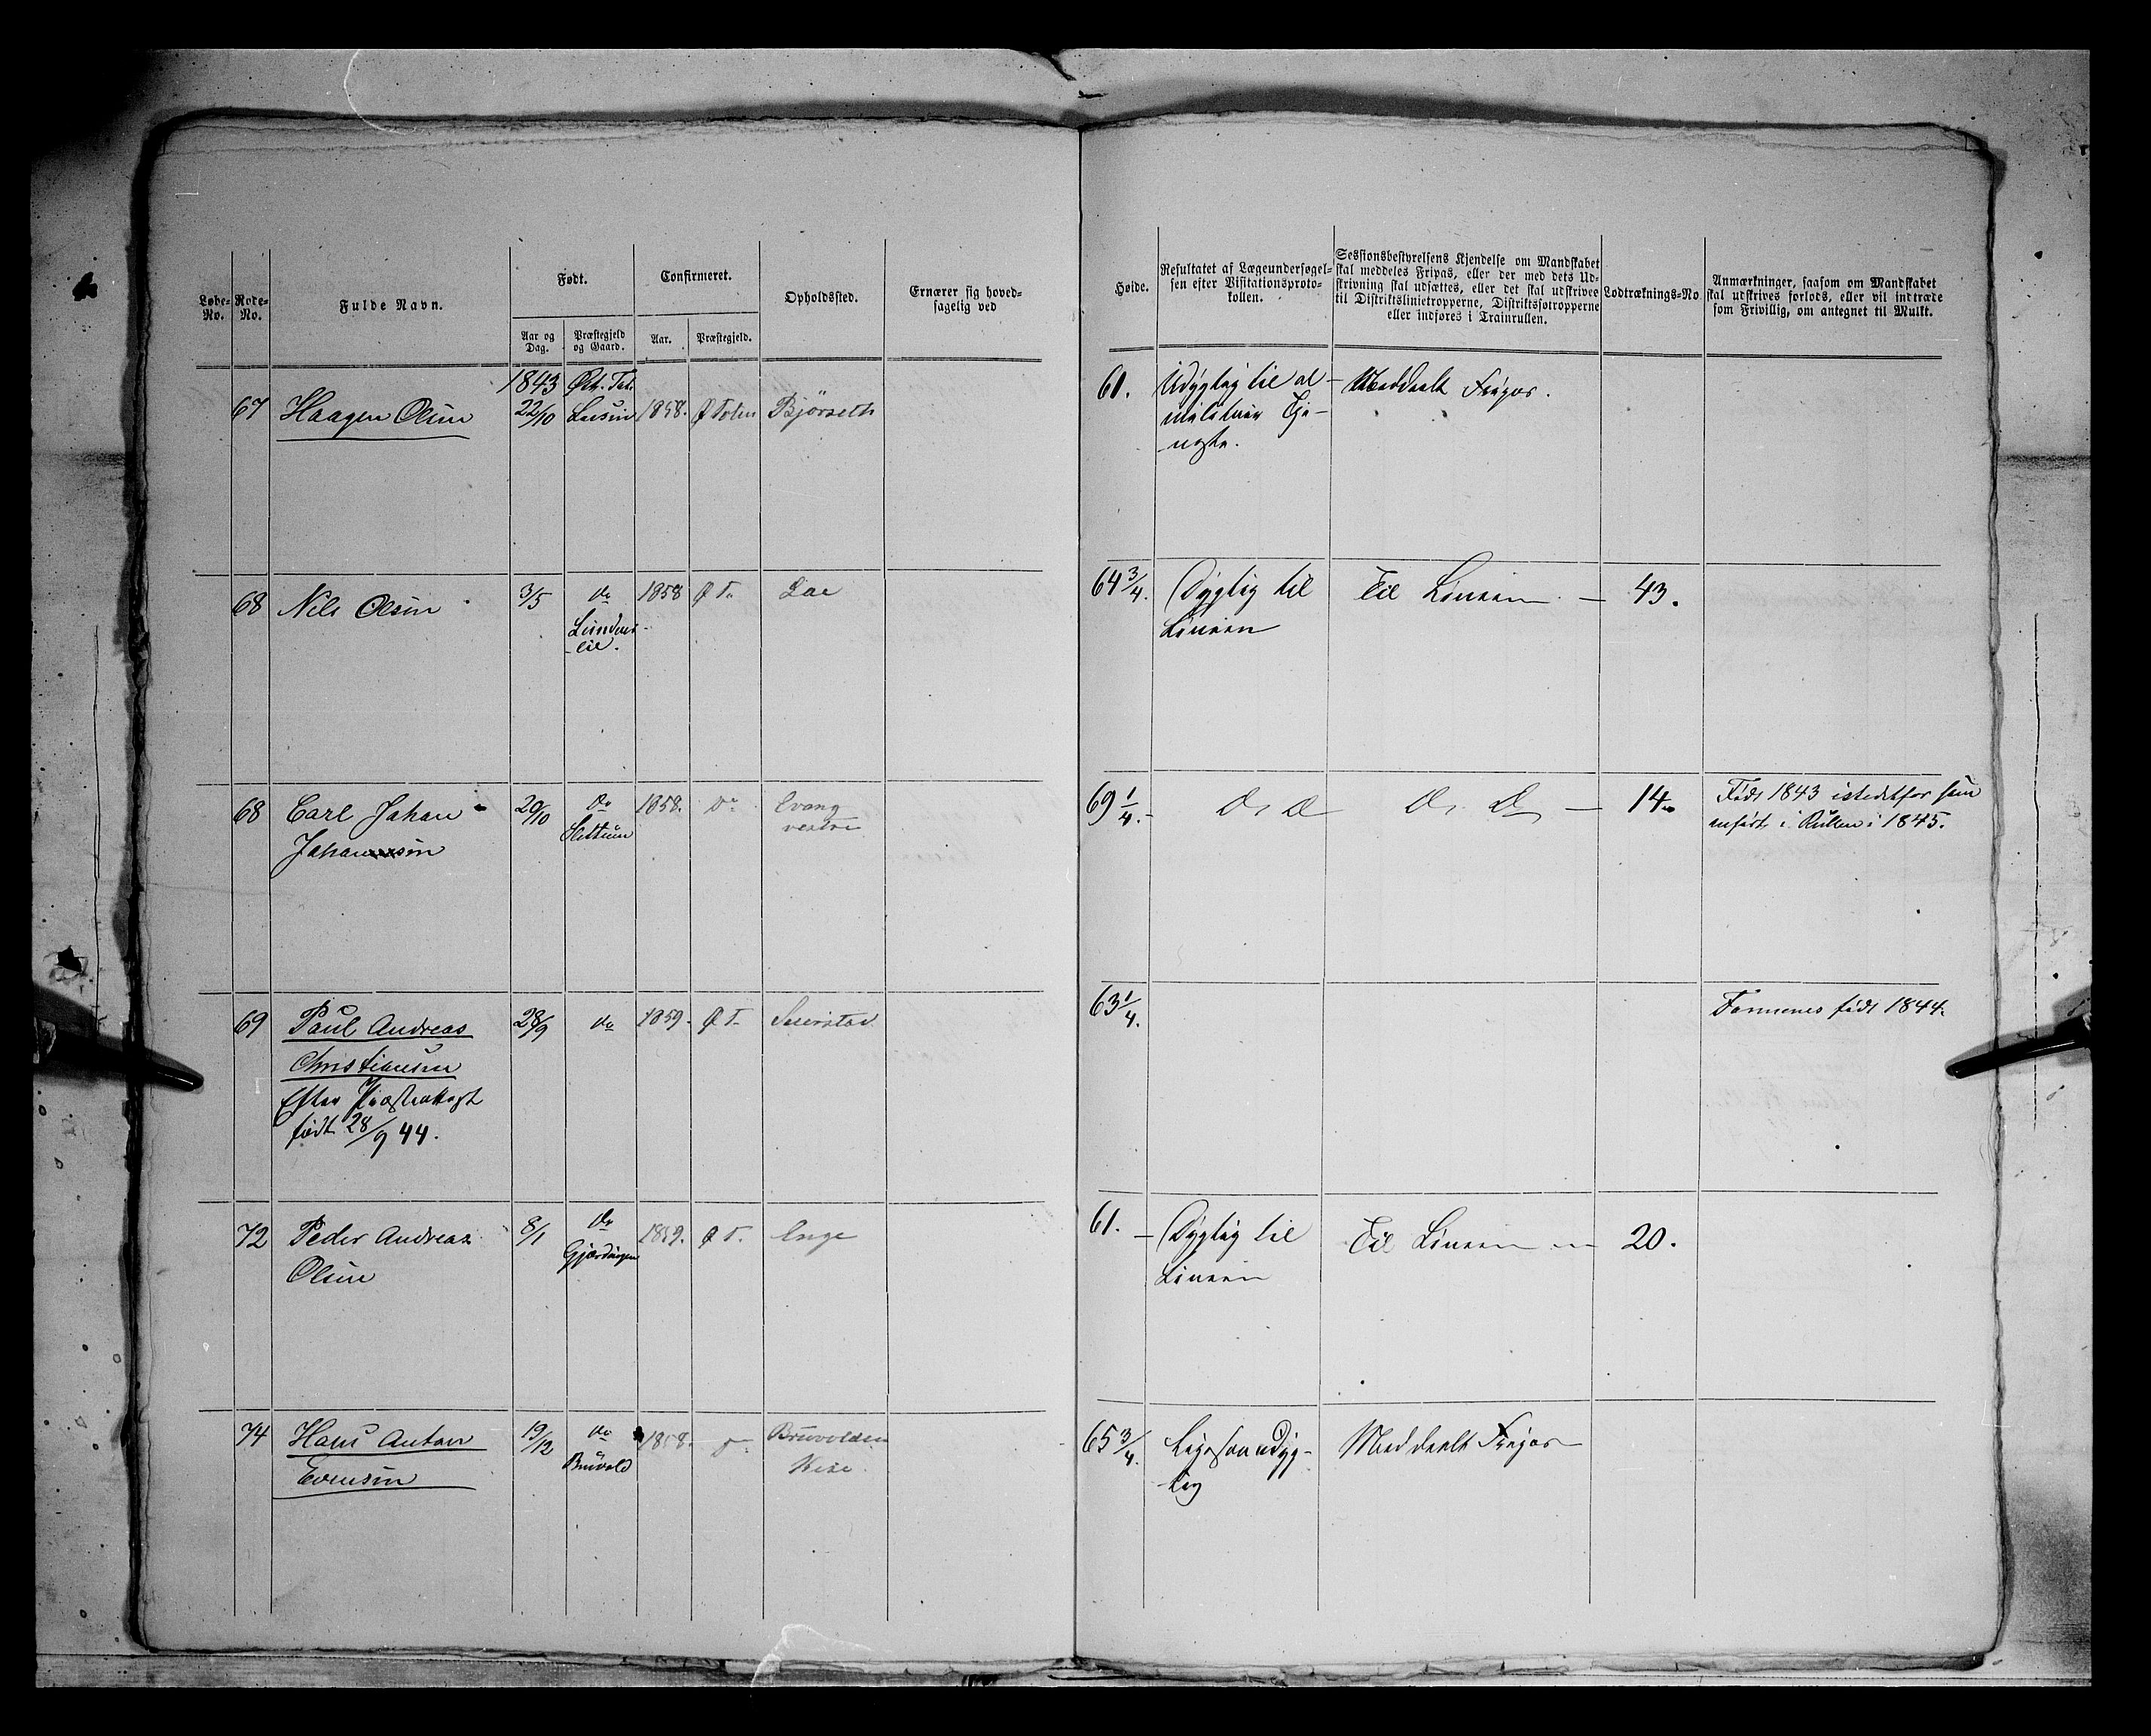 Løbe-No.
Rode-No.
Fulde Navn.
Født.
Aar og Dag.
Præstegjeld og Gaard.
Confirmeret.
Aar.
Præstegjeld.
Opholdssted.
Ernærer sig hoved-
sagelig ved
Høide.
Resultatet af Lægeundersøgel-
sen efter Visitationsproto-
kollen.
Sessionsbestyrelsens Kjendelse om Mandskabet
skal meddeles Fripas, eller der med dets Ud-
skrivning skal udsættes, eller det skal udskrives
til Distriktslinietropperne, Distriktsfotropperne
eller indføres i Trainrullen.
Lodtræknings-No
Anmærkninger, saasom om Mandskabet
skal udskrives forlods, eller vil indtræde
som Frivillig, om antegnet til Mulkt.
1843
67 Haagen Olsen 22/10 1858. Ø Toten Bjørseth
61. Udygtig til al Meddeelt Fripas.
militær Tje-
neste.
68 Nils Olsen 3/5 do 1858 Ø T.
64 3/4. Dygtig til Til Linien — 43.
Linien
68 Carl Johan 20/10 do 1858. do
Johansen
69 1/4. Do Do Do Do — 14.
Født 1843 istedetfor som
anført i Rullen i 1845.
69 Paul Andreas 28/9 do 1859. Ø T.
Christiansen
Efter Præsteattest
født 28/9 44.
63 1/4.
Formenes født 1844.
72 Peder Andreas 8/1 do 1859. Ø T. Enge
Olsen Gjørdingen
61. Dygtig til Til Linien — 20.
Linien
74 Hans Anton 19/12 do 1858. do Bruvolden
Evensen Bruvold
65 3/4. Ligesaa udyg- Meddeelt Fripas
tig